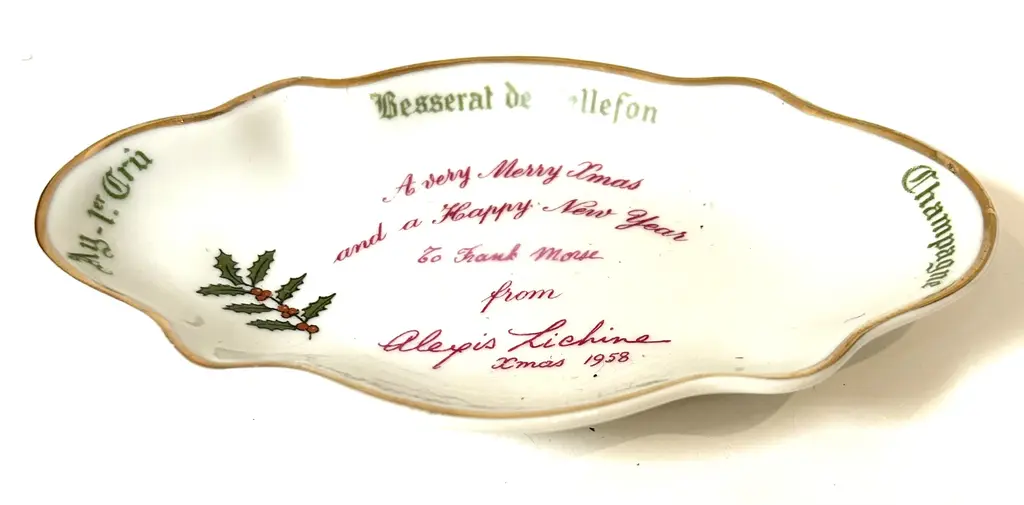 Besserat de ellefon
Ay-1er Crû
Champagne
A very Merry Xmas
and a Happy New Year
To Frank Morse
from
Alexis Lichine
Xmas 1958